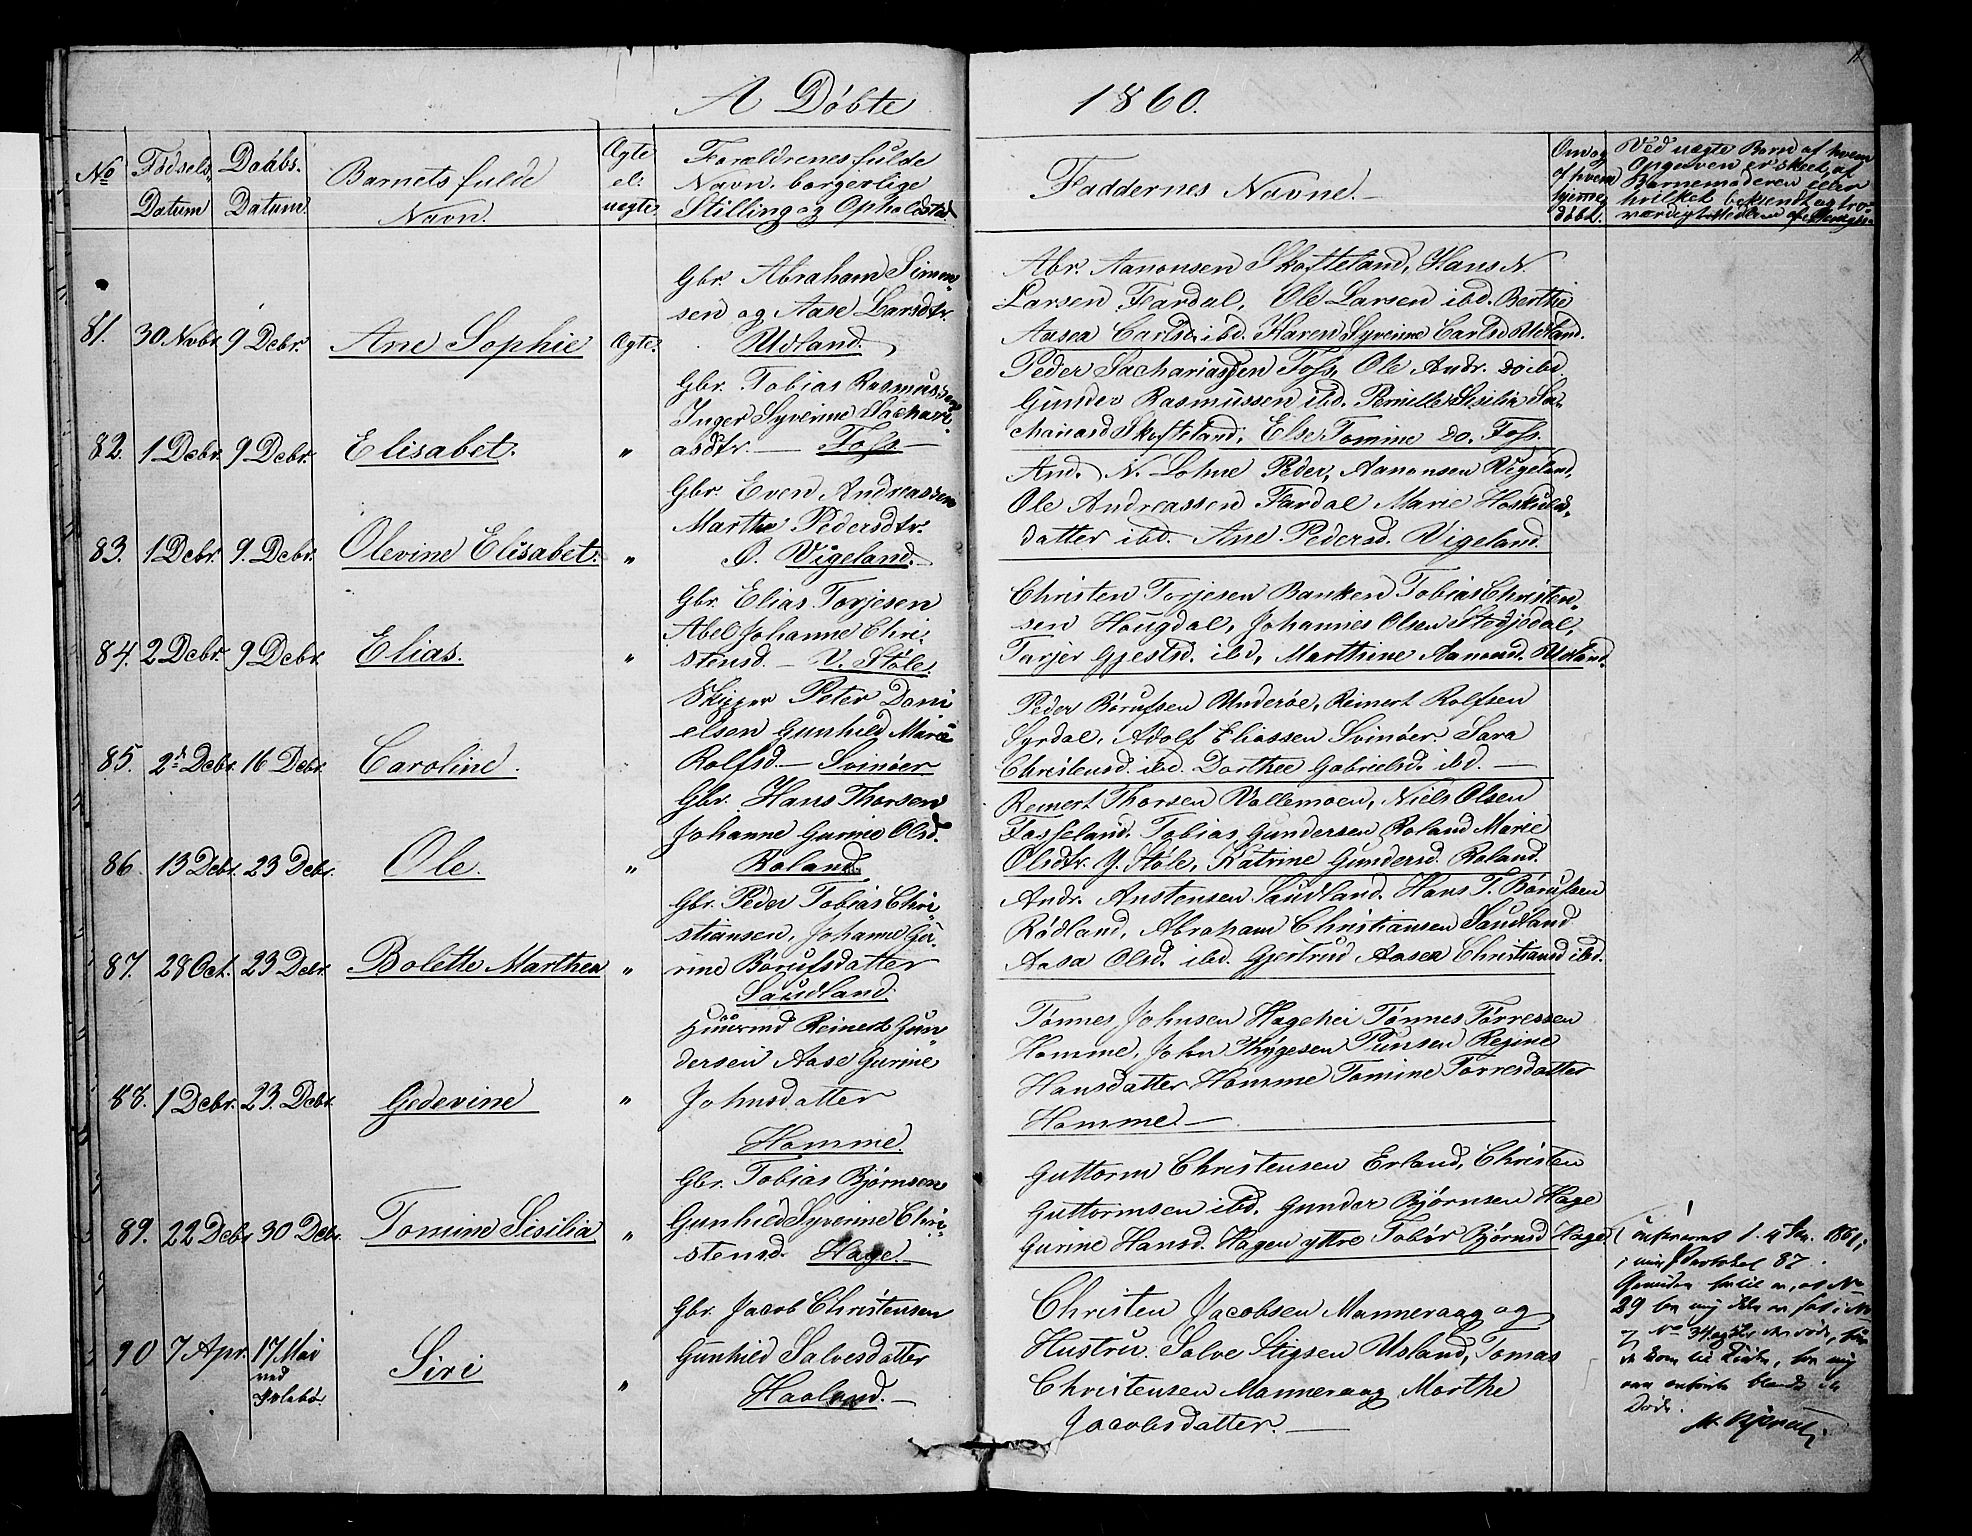 A Døbte 1860.
No
Fødsels Datum
Daabs Datum.
Barnets fulde Navn.
Ægte el. uægte.
Forældrenes fulde Navn, borgerlige Stilling og Opholdsted.
Faddernes Navne.
Om og af hvem hjemmedøbt.
Ved uægte Barn af hvem Opgaven er skeet, af Barnemoderen eller hvilket bekjendt og
81. 30 Novbr. 9 Debr. Ane Sophie Ægte.
Gbr. Abraham Simon-
sen og Aase Larsdtr.
Udland.
Abr. Aanonsen Skofteland, Hans N.
Larsen Fardal, Ole Larsen ibd. Berthe
Aasea Carlsd. ibd. Karen Syverine Carlsd Udland.
82. 1 Debr. 9 Debr. Elisabet. "
Gbr. Tobias Rasmussen
Inger Syverine Sachari-
asdtr. — Foss —
Peder Sachariassen Foss, Ole Andr. do ibd
Gunder Rasmussen ibd. Pernille Sisilia Sa-
chariasd Skofteland, Else Tomine do. Foss.
83. 1 Debr. 9. Debr. Olevine Elisabet. "
Gbr. Even Andreassen
Marthe Pedersdtr.
Ø. Vigeland.
And. N. Lohne Peder Aanonsen Vigeland,
Ole Andreassen Fardal Marie Hoskulds-
datter ibd. Ane Pedersd. Vigeland.
84. 2 Debr. 9 Debr. Elias. "
Gbr. Elias Torjesen
Abel Johanne Chri-
stensd. — V. Støle.
Christen Torjesen Banken Tobias Christen-
sen Hougdal, Johannes Olsen Stedjedal,
Tarjer Gjestsd. ibd, Marthine Aanensd. Udland.
85. 2d Debr. 16 Debr. Caroline.
Skipper Peter Dani
elsen Gunhild Marie
Rolfsd. — Svinøer
Peder Børufsen Underøe, Reinert Rolfsen
Syrdal, Adolf Eliassen Svinøer. Sara
Christensd. ibd. Dorthee Gabrielsd. ibd. —
86. 13 Debr. 23 Debr. Ole. "
Gbr. Hans Thorsen
Johanne Gurine Olsd.
Roland.
Reinert Thorsen Vallemoen, Niels Olsen
Fosseland. Tobias Gundersen Roland Marie
Olsdtr. Y. Støle, Katrine Gundersd. Roland.
87. 28 Oct. 23 Debr. Bolette Marthea "
Gbr. Peder Tobias Chri-
stiansen, Johanne Gu-
rine Børufsdatter
Saudland.
Andr. Anstensen Saudland. Hans T. Børufsen
Rødland, Abraham Christiansen Saudland
Aasa Olsd. ibd. Gjertrud Aasea Christiansd ibd.
88. 1 Debr. 23. Debr. Gedevine "
Huusmd Reinert Gun-
dersen Aase Gurine
Johnsdatter
Homme.
Tønnes Johnsen Hagehei Tønnes Tørressen
Homme, John Thygesen Regine
Hansdatter Homme Tomine Torresdatter
Homme. —
89. 22 Debr. 30 Debr. Tomine Sisilia "
Gbr. Tobias Bjørnsen
Gunhild Syverine Chri-
stensd. Hage. —
Guttorm Christensen Erland, Christen
Guttormsen ibd. Gunder Bjørnsen Hage
Gurine Hansd. Hagen yttre Tobør Bjørnsd Hage
90 7 Apr. 17 Mai ved Siri "
Gbr. Jacob Christensen
Gunhild Salvesdatter
Haaland. —
Christen Jacobsen Manneraag og
Hustru. Salve Stigsen Usland, Tomas
Christensen Manneraag Marthe
Jacobsdatter. —
1861;
i min Protokol 87.
29
Døde.